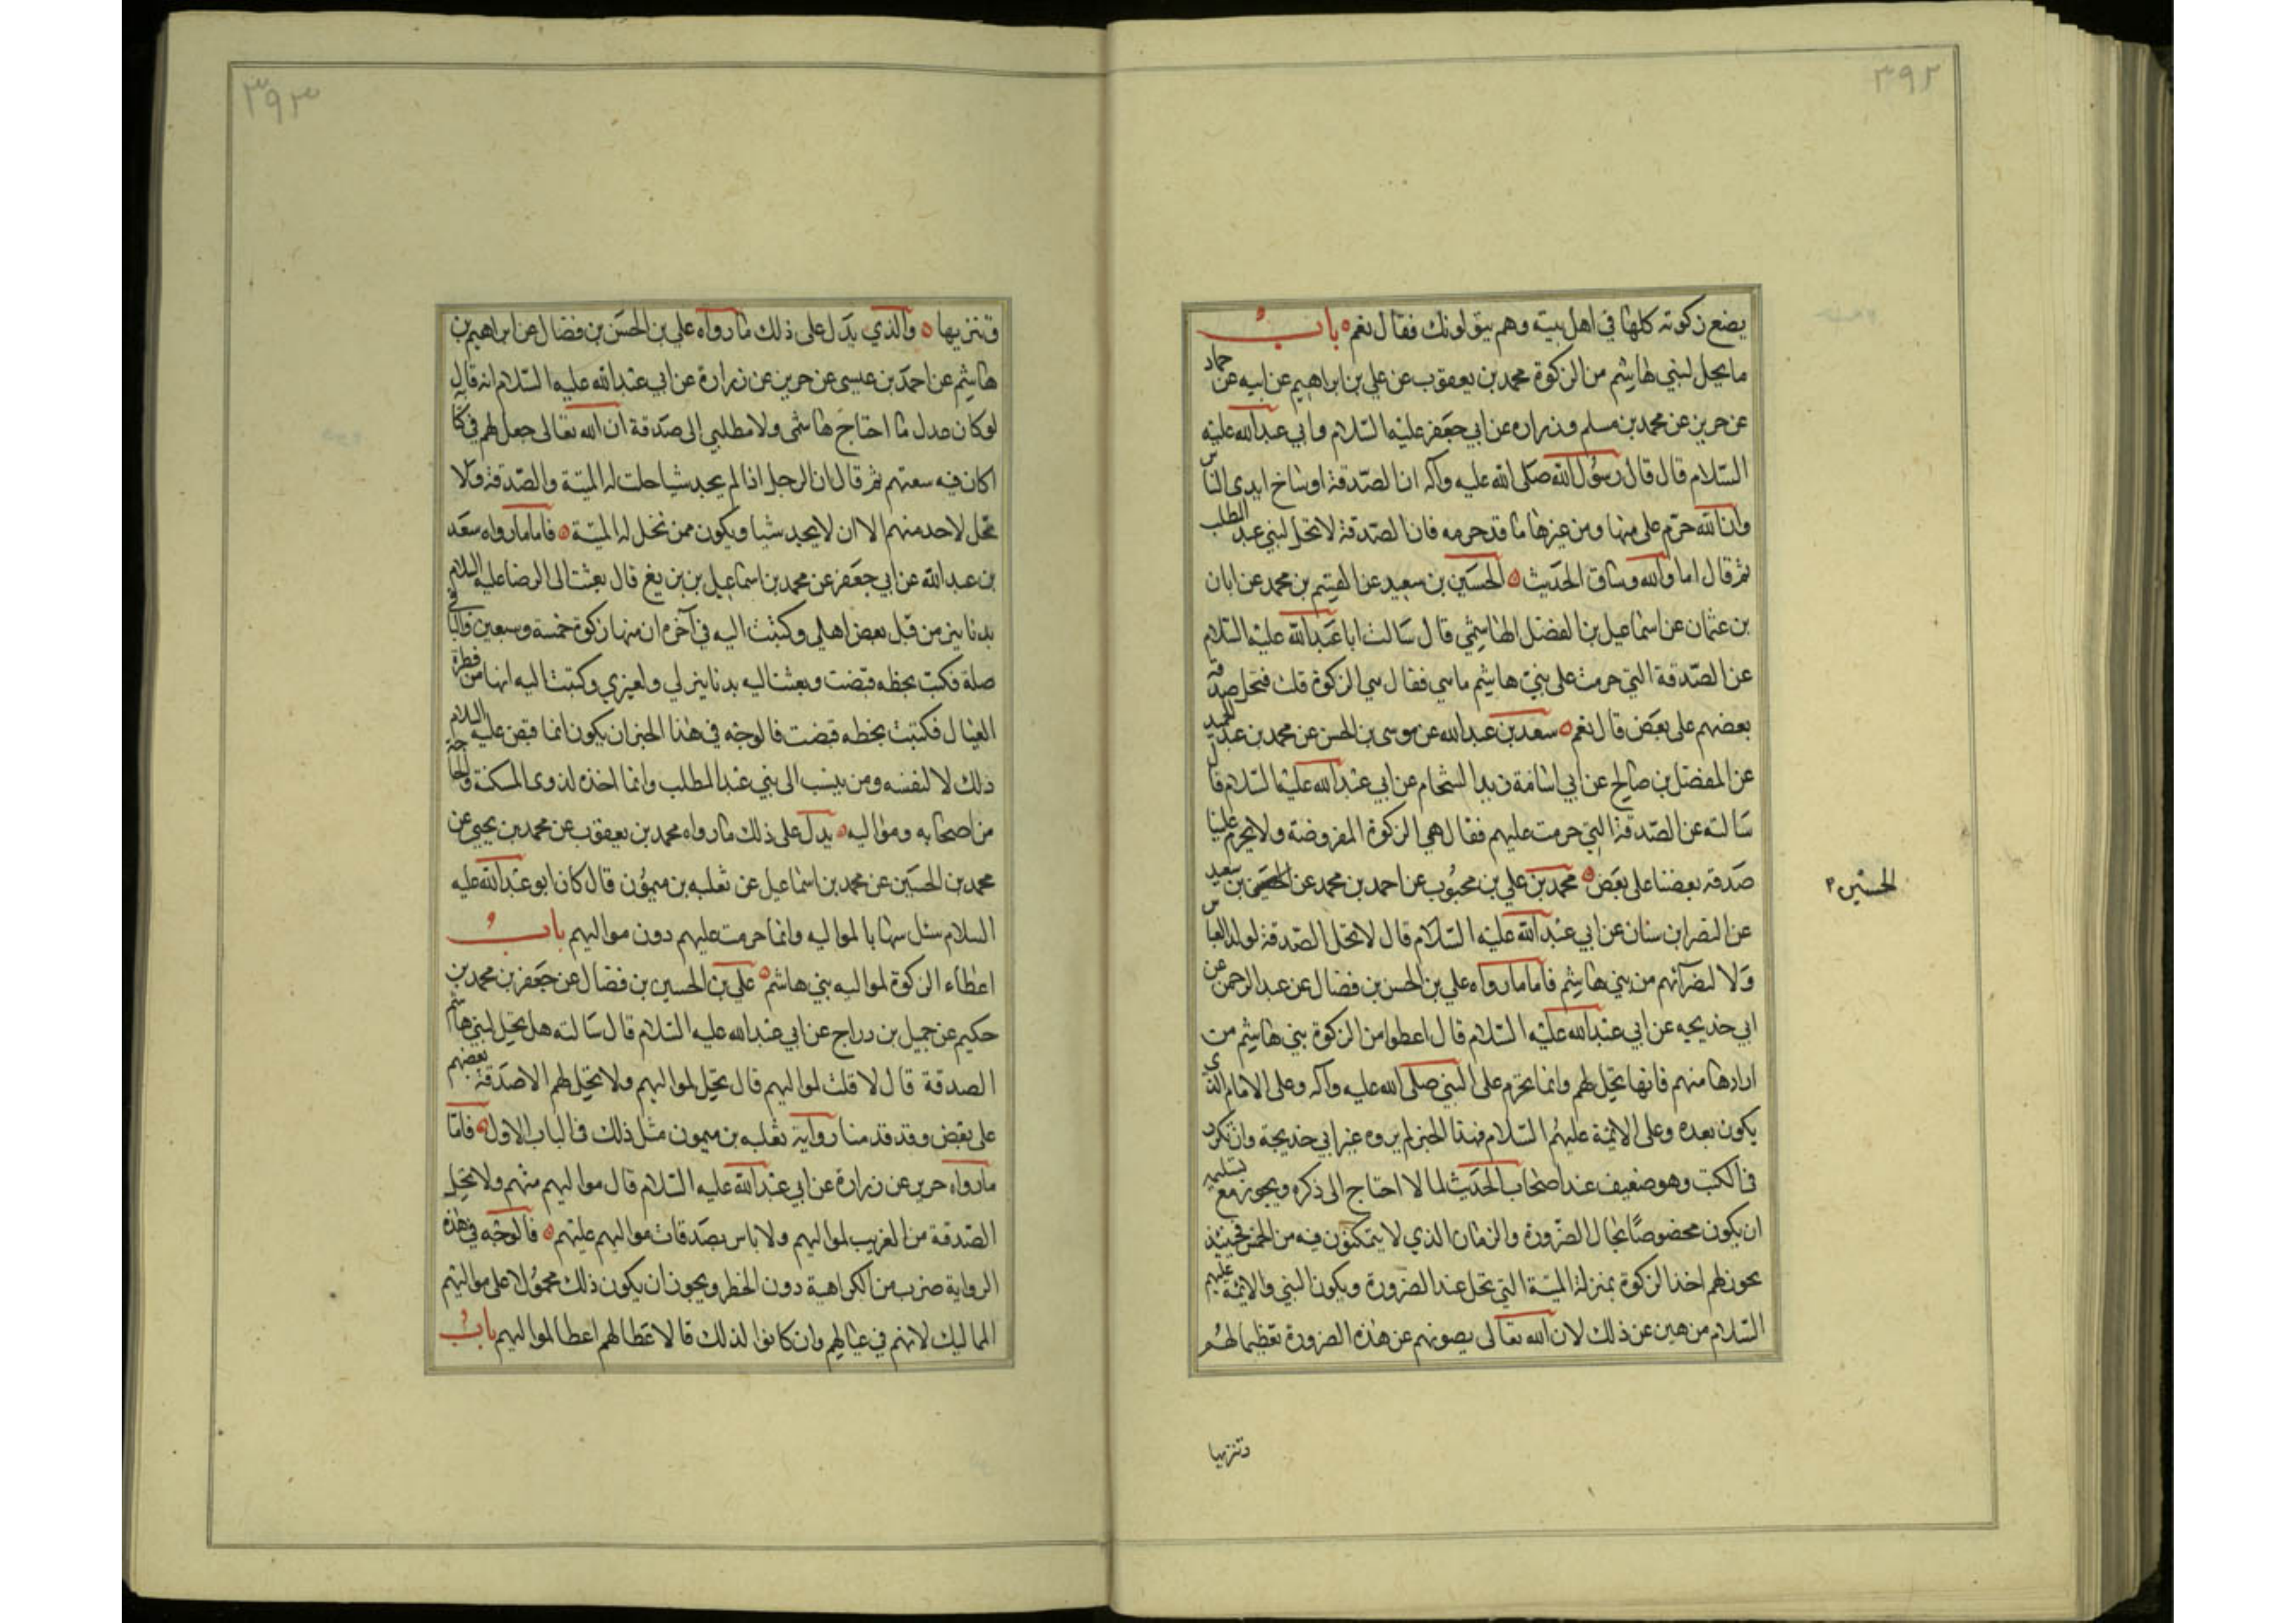 ٣٩٢
يضع زكوته كلها في اهل بيته وهم يتولونك فقال نعم باب
ما يحل لبني هاشم من الزكوة محمد بن يعقوب عن علي بن ابراهيم عن ابيه عن حماد
عن حريز عن محمد بن مسلم وزراره عن ابي جعفر عليهما السلام وابي عبد الله عليه
السلام قال قال رسول الله صلى الله عليه وآله ان الصدقة اوساخ ايدي الناس
وان الله حرم على منها ومن غيرها ما قد حرمه فان الصدقة لا تحل لبني عبد المطلب
ثم قال اما والله وساق الحديث الحسين بن سعيد عن القسم بن محمد عن ابان
بن عثمان عن اسماعيل بن الفضل الهاشمي قال سالت ابا عبد الله عليه السلام
عن الصدقة التي حرمت على بني هاشم ماسي فقال سي الزكوة قلت فتحل صدقه
بعضهم على بعض قال نعم سعد بن عبد الله عن موسى بن الحسن عن محمد بن عبد الحميد
عن المفضل بن صالح عن ابي اسامة زيد الشحام عن ابي عبد الله عليه السلام قال
سالته عن الصدقة التي حرمت عليهم فقال هي الزكوة المفروضة ولا يحرم علينا
صدقه بعضنا على بعض محمد بن علي بن محبوب عن احمد بن محمد عن بن سعيد
الحسين
عن النضر ابن سنان عن ابي عبد الله عليه السلام قال لا تحل الصدقة لولد العباس
ولا لنضرآئهم من بني هاشم فاما ما رواه علي بن الحسن بن فضال عن عبد الرحمن عن
ابي خديجه عن ابي عبد الله عليه السلام قال اعطوا من الزكوة بني هاشم من
ارادها منهم فانها تحل لهم وانما تحرم على النبي صلى الله عليه وآله وعلى الامام الذي
يكون بعده وعلى الائمة عليهم السلام فهذا الخبر لم يروه غير ابي خديجة وان تكرر
في الكتب وهو ضعيف عند اصحاب الحديث لما لا احتاج الى ذكره ويجوز مع تسليمه
ان يكون مخصوصًا بحال الضرورة والزمان الذي لا يتمكنون فيه من الخمس فحينئذ
يجوز لهم اخذ الزكوة بمنزلة الميتة التي تحل عند الضرورة ويكون النبي والائمة عليهم
السلام منزهين عن ذلك لان الله تعالى يصونهم عن هذه الضرورة تعظيما لهم
وتنزيها
٣٩٣
وتنزيها والذي يدل على ذلك ما رواه علي بن الحسن بن فضال عن ابراهيم بن
هاشم عن احمد بن عيسى عن حريز عن زرارة عن ابي عبد الله عليه السلام انه قال
لو كان عدل ما احتاج هاشمى ولا مطلبي الى صدقة ان الله تعالى جعل لهم في كتابه
اكان فيه سعتهم ثم قال ان الرجل اذا لم يجد شيا حلت له الميتة والصدقة ولا
تحل لاحد منهم الا ان لا يجد شيا ويكون ممن تحل له الميتة فاما ما رواه سعد
بن عبد الله عن ابي جعفر عن محمد بن اسماعيل بن بزيع قال بعثت الى الرضا عليه السلام
بدنانير من قبل بعض اهلي وكتبت اليه في آخره ان منها زكوة خمسة وسبعين والباقي
صلة فكتب بخطه قبضت وبعثت اليه بدنانير لي ولغيري وكتبت اليه انها من فطرة
العيال فكتبت بخطه قبضت فالوجه في هذا الخبر ان يكون انما قبض عليه السلام
ذلك لا لنفسه ومن ينسب الى بني عبد المطلب وانما اخذه لذوى المسكنة والحاجة
من اصحابه ومواليه يدل على ذلك ما رواه محمد بن يعقوب عن محمد بن يحيى عن
محمد بن الحسين عن محمد بن اسماعيل عن ثعلبه بن ميمون قال كان ابو عبد الله عليه
السلام سئل سهابا لمواليه وانما حرمت عليهم دون مواليهم باب
اعطاء الزكوة لمواليه بني هاشم علي بن الحسين بن فضال عن جعفر بن محمد بن
حكيم عن جميل بن دراج عن ابي عبد الله عليه السلام قال سالته هل تحل لبني هاشم
الصدقة قال لا قلت لمواليهم قال تحل لمواليهم ولا تحل لهم الا صدقة بعضهم
على بعض وقد قدمنا رواية ثعلبه بن ميمون مثل ذلك في الباب الاول فاما
ما رواه حريز عن زرارة عن ابي عبد الله عليه السلام قال مواليهم منهم ولا تحل
الصدقة من الغريب لمواليهم ولا باس بصدقات مواليهم عليهم فالوجه في هذه
الرواية ضرب من الكراهية دون الحظر ويجوز ان يكون ذلك محمولا على مواليهم
المماليك لانهم في عيالهم وان كانوا لذلك فالاعطا لهم اعطا لمواليهم باب